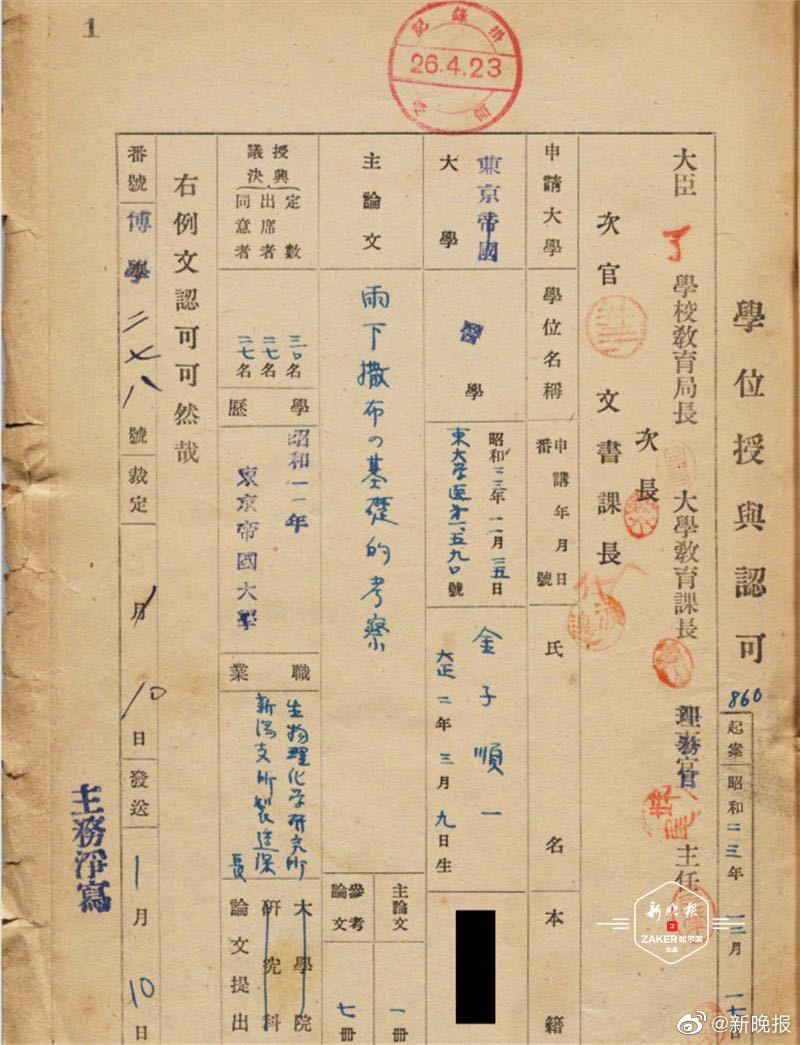 1
記錄掛
26.4.23
學位授與認可
860
起案 昭和二三年一二月一七日
大臣 了 學校敎育局長 大學敎育課長 理事官 主任
次長
次官 文書課長
申請大學 東京帝國大學
學位名稱 醫學
申請年月日 昭和二三年一二月一五日
番號 東大学医才一五九〇號
氏名 金子順一
大正二年三月九日生
本籍
主論文 雨下撒布の基礎的考察
主論文 一冊
參考論文 七冊
授與議決
定數 三〇名
出席者 二七名
同意者 二七名
學歷 昭和一一年 東京帝國大學
職業 生物理化学研究所新潟支所製造課長
大學院研究科
論文提出
右例文認可可然哉
番號 博學二七八號
裁定 月10日
發送 1月10日
主務淨寫
新晚报
ZAKER哈尔滨
出品
@新晚报